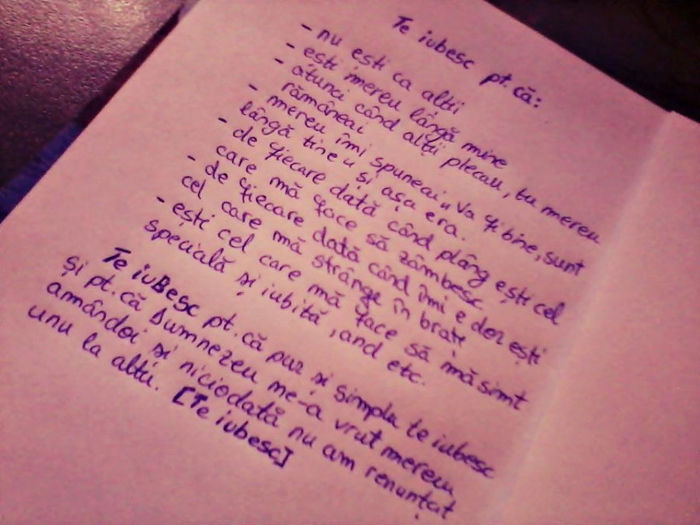 Te iubesc pt. că:
- nu ești ca alții
- ești mereu lângă mine
- atunci când alții plecau, tu mereu
rămâneai
- mereu îmi spuneai „Va fi bine, sunt
lângă tine" și așa era.
- de fiecare dată când plâng ești cel
care mă face să zâmbesc
- de fiecare dată când îmi e dor ești
cel care mă strânge în brațe
- ești cel care mă face să mă simt
specială și iubită, and etc.
Te iuBesc pt. că pur și simplu te iubesc
și pt. că Dumnezeu ne-a vrut mereu
amândoi și niciodată nu am renunțat
unu la altu. [Te iubesc]